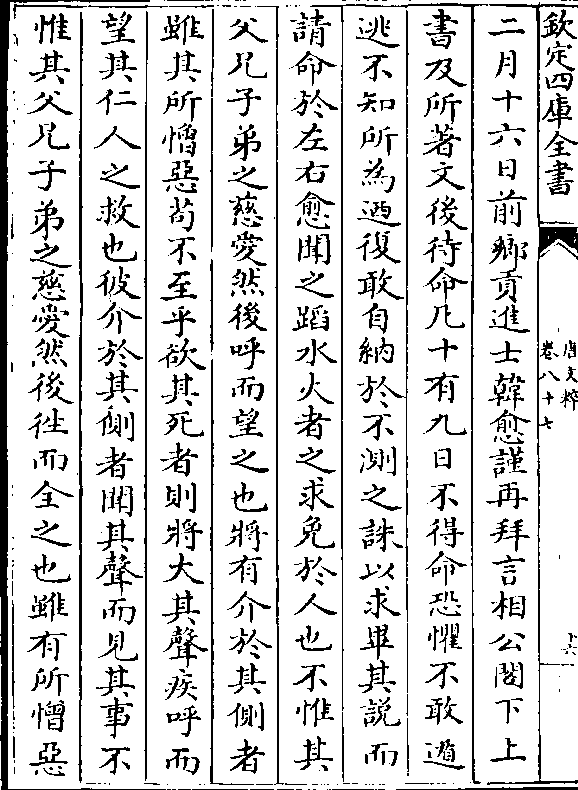 欽定四庫全書
唐文粹
卷八十七
十六
二月十六日前鄉貢進士韓愈謹再拜言相公閣下上
書及所著文後待命凡十有九日不得命恐懼不敢遁
逃不知所為迺復敢自納於不測之誅以求畢其説而
請命於左右愈聞之蹈水火者之求免於人也不惟其
父兄子弟之慈愛然後呼而望之也將有介於其側者
雖其所憎惡苟不至乎欲其死者則將大其聲疾呼而
望其仁人之救也彼介於其側者聞其聲而見其事不
惟其父兄子弟之慈愛然後徃而全之也雖有所憎惡